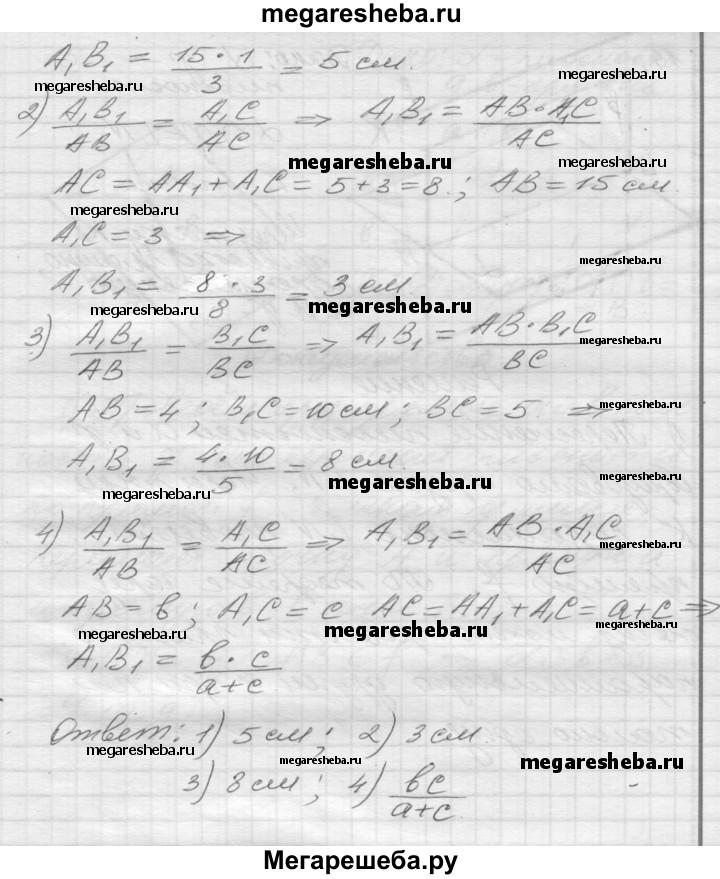 megaresheba.ru
A₁B₁ = 15·1/3 = 5 см.
megaresheba.ru
megaresheba.ru
2) A₁B₁/AB = A₁C/AC ⇒ A₁B₁ = AB·A₁C/AC
megaresheba.ru
megaresheba.ru
AC = AA₁ + A₁C = 5+3=8.; AB = 15 см.
megaresheba.ru
A₁C = 3 ⇒
megaresheba.ru
A₁B₁ = 8·3/8 = 3 см
megaresheba.ru
megaresheba.ru
3) A₁B₁/AB = B₁C/BC ⇒ A₁B₁ = AB·B₁C/BC
megaresheba.ru
AB = 4; B₁C = 10 см; BC = 5 ⇒
megaresheba.ru
A₁B₁ = 4·10/5 = 8 см.
megaresheba.ru
megaresheba.ru
megaresheba.ru
4) A₁B₁/AB = A₁C/AC ⇒ A₁B₁ = AB·A₁C/AC
megaresheba.ru
AB = в; A₁C = c AC = AA₁ + A₁C = a+c ⇒
megaresheba.ru
megaresheba.ru
megaresheba.ru
A₁B₁ = в·c/a+c
Ответ: 1) 5 см; 2) 3 см.
megaresheba.ru
megaresheba.ru
megaresheba.ru
3) 8 см; 4) вc/a+c
Мегарешеба.ру